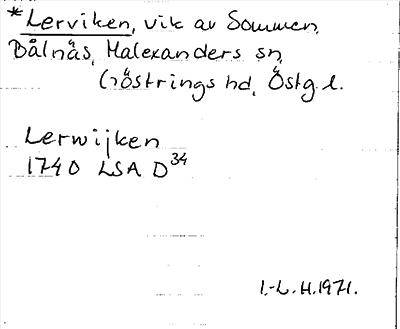 *Lerviken, vik av Sommen,
Bålnäs, Malexanders sn,
Göstrings hd, Östg. l.
Lerwijken
1740 LSA D34
I.-L. H. 1971.